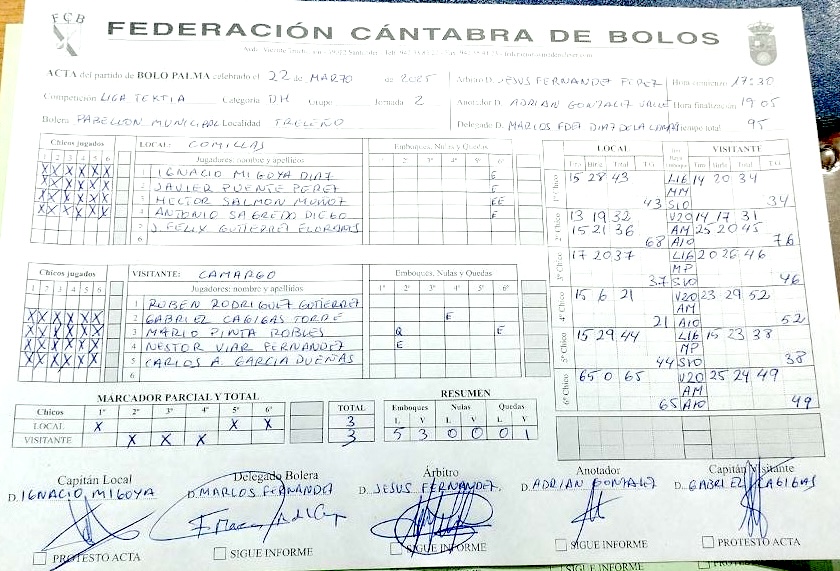 FCB
FEDERACIÓN CÁNTABRA DE BOLOS
ACTA del partido de BOLO PALMA celebrado el 22 de MARZO de 2025
Arbitro D. JESUS FERNANDEZ PEREZ Hora comienzo 17:30
Competición LIGA Categoría DH Grupo Jornada 2
Anotador D. ADRIAN GONZALEZ Hora finalización 19 05
Bolera PABELLON MUNICIPAL Localidad TRECEÑO
Delegado D. MARCOS Tiempo total 95
Chicos jugados LOCAL: COMILLAS Emboques, Nulas y Quedas
1 2 3 4 5 6 Jugadores: nombre y apellidos 1º 2º 3º 4º 5º 6º
X X X X X X 1 IGNACIO MIGOYA DIAZ E
X X X X X X 2 JAVIER PUENTE PEREZ
X X X X X X 3 HECTOR SALMON MUÑOZ EE
X X X X X X 4 ANTONIO SAGREDO DIEGO E
5 J. FELIX GUTIERREZ
6
Chicos jugados VISITANTE: CAMARGO Emboques, Nulas y Quedas
1 2 3 4 5 6 Jugadores: nombre y apellidos 1º 2º 3º 4º 5º 6º
1 RUBEN RODRIGUEZ GUTIERREZ
X X X X X X 2 GABRIEL CAGIGAS TORRE E
X X X X X X 3 MARIO PINTA ROBLES Q E
X X X X X X 4 NESTOR VIAR FERNANDEZ E
X X X X X X 5 CARLOS A. GARCIA DUEÑAS
6
LOCAL VISITANTE
Tiro Birle Total T.G. Tiro Birle Total T.G.
1º Chico 15 28 43 LIE 14 20 34
MM
43 S10 34
2º Chico 13 19 32 V20 14 17 31
15 21 36 AM 25 20 45
68 A10 76
3º Chico 17 20 37 LIE 20 26 46
MP
37 S10 46
4º Chico 15 6 21 V20 23 29 52
AM
21 A10 52
5º Chico 15 29 44 LIE 15 23 38
MP
44 S10 38
6º Chico 65 0 65 V20 25 24 49
AM
65 A10 49
MARCADOR PARCIAL Y TOTAL
Chicos 1º 2º 3º 4º 5º 6º TOTAL
LOCAL X X X 3
VISITANTE X X X 3
RESUMEN
Emboques Nulas Quedas
L V L V L V
5 3 0 0 0 1
Capitán Local Delegado Bolera Árbitro Anotador Capitán Visitante
D. IGNACIO MIGOYA D. MARCOS FERNANDEZ D. JESUS FERNANDEZ. D. ADRIAN GONZALEZ D. GABRIEL CAGIGAS
PROTESTO ACTA SIGUE INFORME SIGUE INFORME SIGUE INFORME PROTESTO ACTA